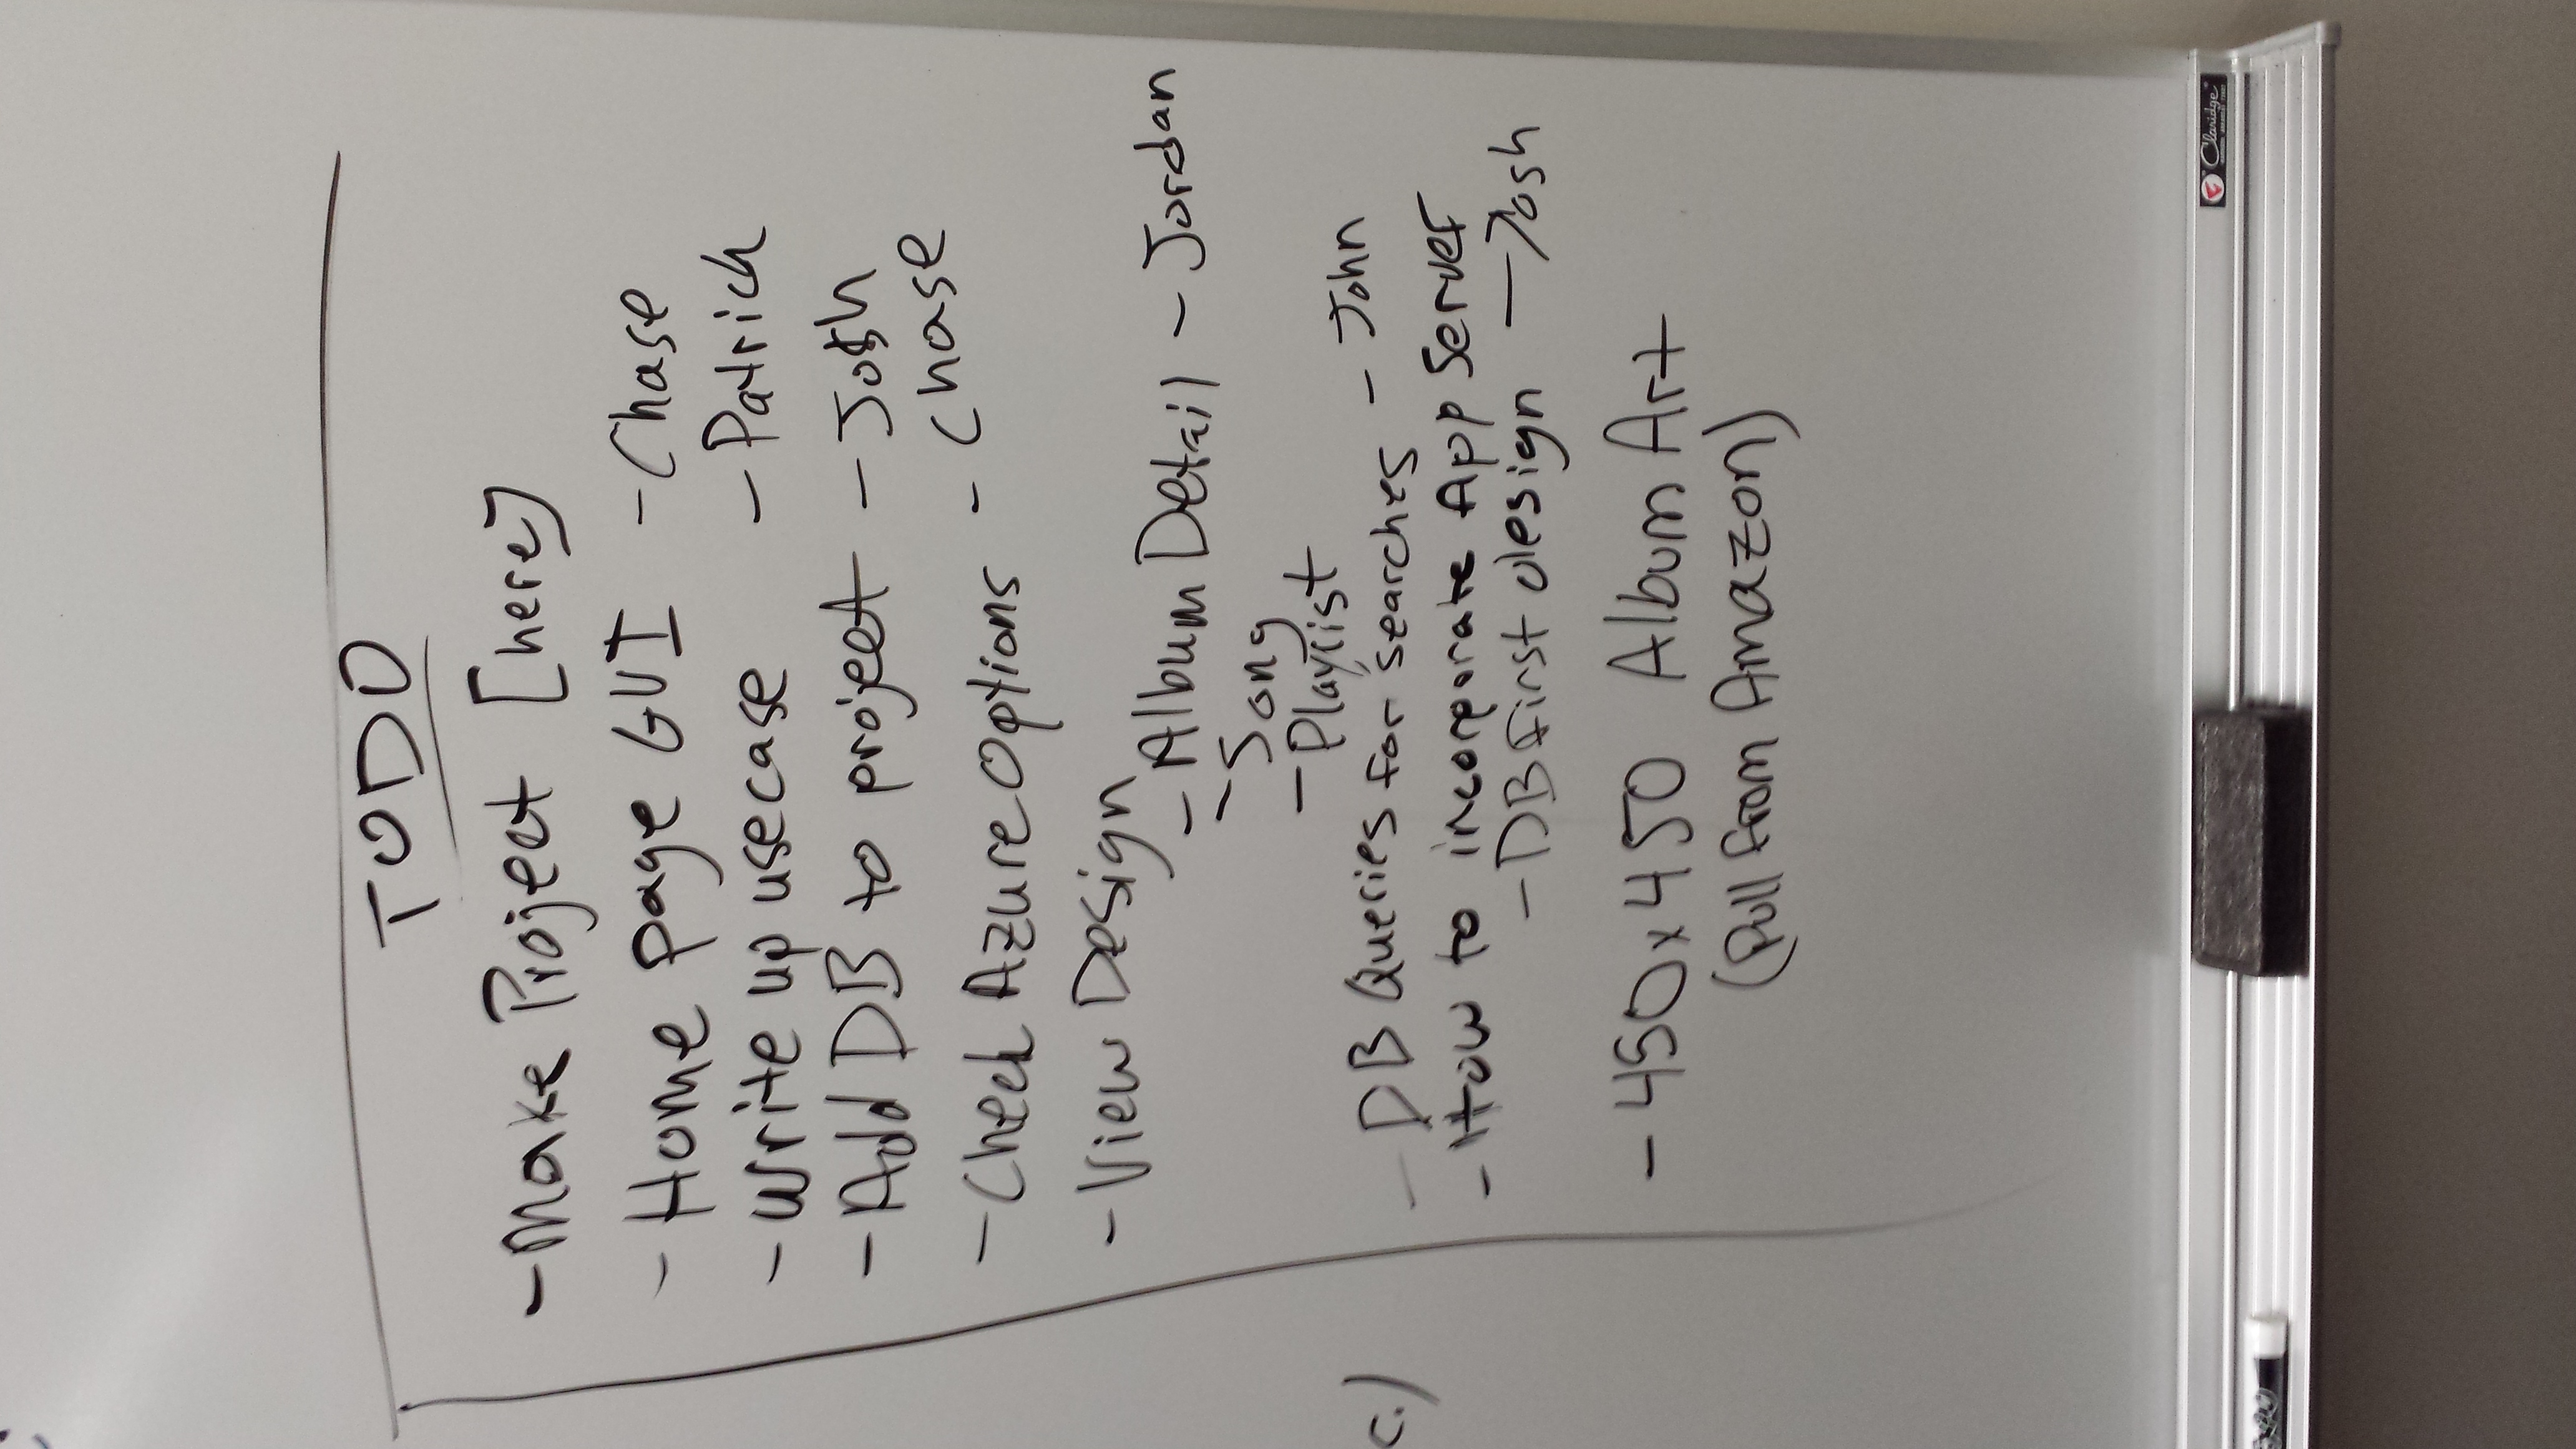 TODO
- Make Project [here]
- Home page GUI - Chase
- Write up usecase - Patrick
- Add DB to project - Josh
- Check Azure Options - Chase
- View Design
- Album Detail - Jordan
- Song
- Playlist
c.)
- DB Queries for searches - John
- How to incorporate App Server
- DB first design - Josh
- 450x450 Album Art
(Pull from Amazon)
Claridge